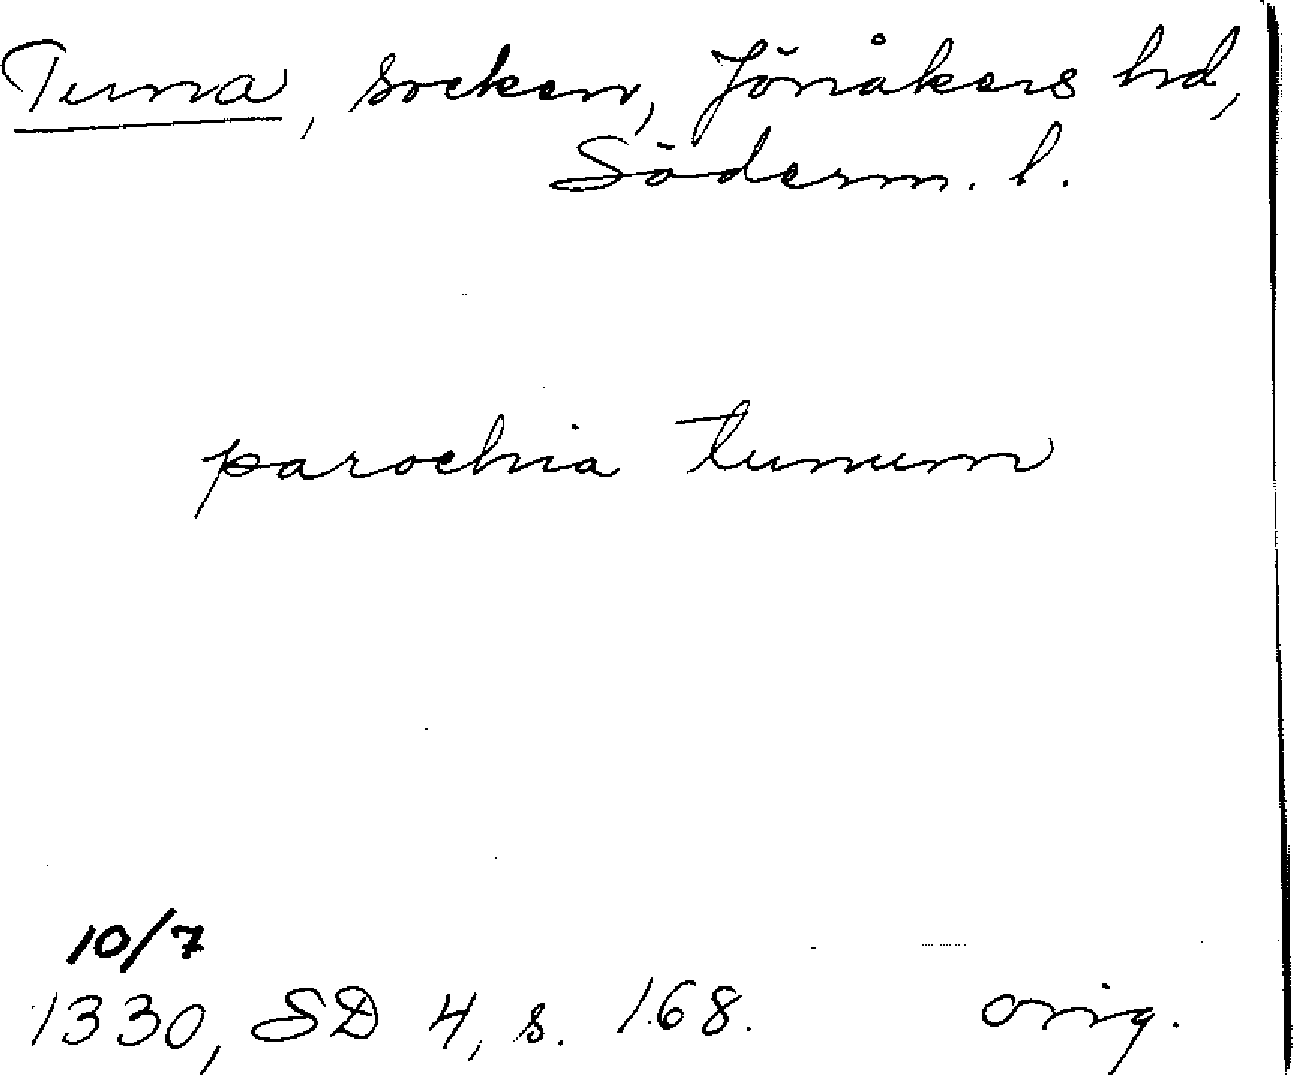 Tuna, socken, Jönåkers hd,
Söderm. l.
parochia tunum
10/7
1330, SD 4, s. 168. orig.